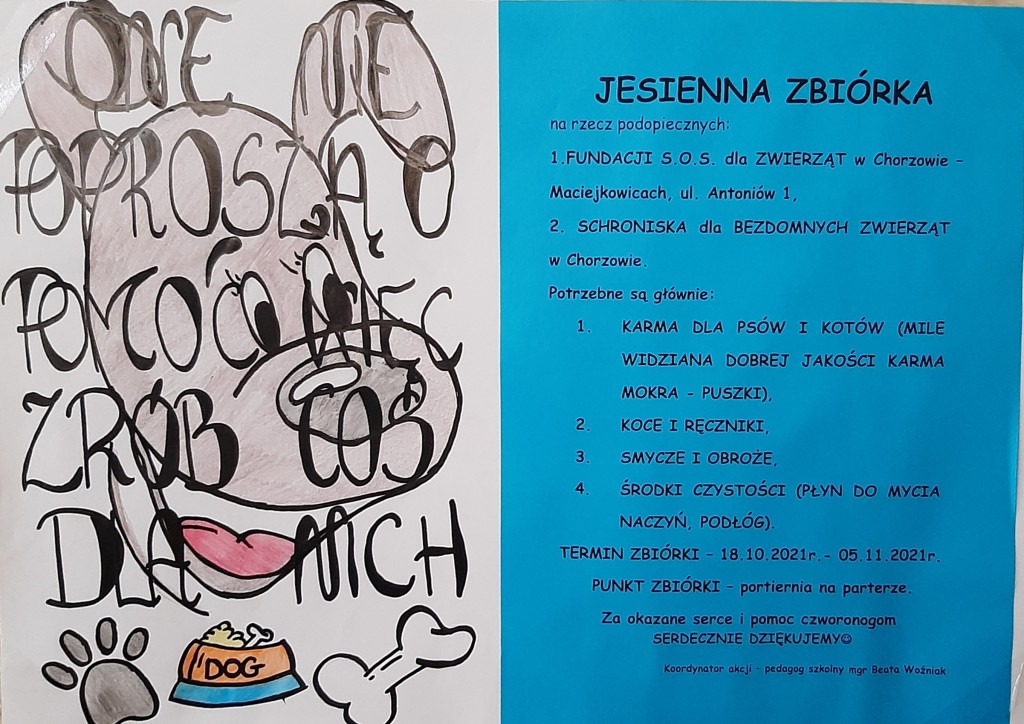 ONE NIE
POPROSZĄ O
POMOC WIĘC
ZRÓB COŚ
DLA NICH
DOG
JESIENNA ZBIÓRKA
na rzecz podopiecznych:
1.FUNDACJI S.O.S. dla ZWIERZĄT w Chorzowie –
Maciejkowicach, ul. Antoniów 1,
2. SCHRONISKA dla BEZDOMNYCH ZWIERZĄT
w Chorzowie.
Potrzebne są głównie:
1. KARMA DLA PSÓW I KOTÓW (MILE
WIDZIANA DOBREJ JAKOŚCI KARMA
MOKRA – PUSZKI),
2. KOCE I RĘCZNIKI,
3. SMYCZE I OBROŻE,
4. ŚRODKI CZYSTOŚCI (PŁYN DO MYCIA
NACZYŃ, PODŁÓG).
TERMIN ZBIÓRKI – 18.10.2021r.- 05.11.2021r.
PUNKT ZBIÓRKI – portiernia na parterze.
Za okazane serce i pomoc czworonogom
SERDECZNIE DZIĘKUJEMY☺
Koordynator akcji – pedagog szkolny mgr Beata Woźniak